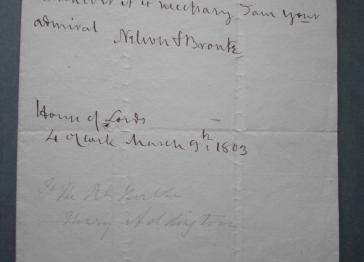 it is necessary I am your
admiral Nelson & Bronte
House of Lords
4 o'clock March 9th: 1803
To the Rt. Honble
Henry Addington